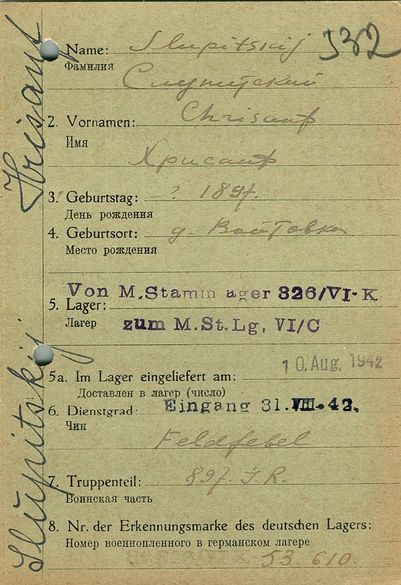 532
Name: Slupitskij
Фамилия
Слупитский
2. Vornamen: Chrisanf
Имя
Хрисанф
3. Geburtstag: ? 1897.
День рождения
4. Geburtsort: д. Войтовка
Место рождения
Von M.Stamm ager 326/VI-K
5. Lager:
Лагер
zum M.St.Lg, VI/C
10. Aug. 1942
5a. Im Lager eingeliefert am:
Доставлен в лагер (число)
6. Dienstgrad: Eingang 31.VIII.42.
Чин
Feldfebel
7. Truppenteil: 897. J.R.
Воинская часть
8. Nr. der Erkennungsmarke des deutschen Lagers:
Номер военнопленного в германском лагере
53 610.
Slupitskij Hrisanf